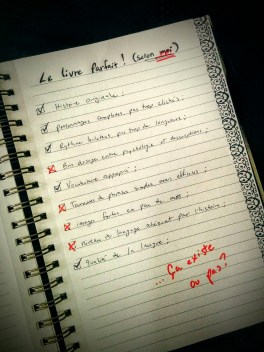 Le livre parfait ! (selon moi)
Histoire originale ;
Personnages complets, pas trop clichés ;
Rythme haletant, pas trop de longueurs ;
Bon dosage entre psychologie et descriptions ;
Vocabulaire approprié ;
Tournures de phrases courtes mais efficaces ;
Images fortes en peu de mots ;
de langage adéquat pour l'histoire ;
Qualité de la langue ;
... Ça existe
ou pas?